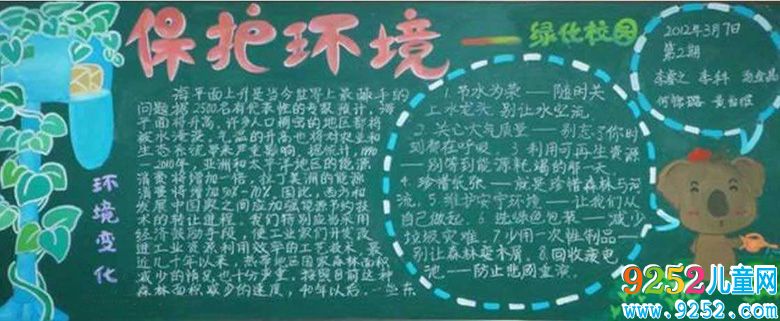 保护环境——绿化校园
2012年3月7日
第2期
环境变化
海平面上升是当今世界上最棘手的
问题据2500名有代表性的专家预计,海
平面将升高,许多人口稠密的地区都将
被水淹没。气温的升高也将对农业和
生态系统带来严重影响。据统计,1990
—2010年,亚洲和太平洋地区的能源
消费将增加一倍,拉丁美洲的能源
消费将增加50%-70%。因此,西方和
发展中国家之间应加强能源节约技
术的转让进程。我们特别应当采用
经济鼓励手段,使工业家们开发改
进工业资源利用效率的工艺技术。最
近几十年以来,热带地区国家森林面积
减少的情况也十分严重。按照目前这种
森林面积减少的速度,40年以后,一些东
1.节水为荣——随时关
上水龙头,别让水空流
2.关心大气质量——别忘了你时
刻都在呼吸 3.利用可再生资源
——别等到能源耗竭的那一天
4.珍惜纸张——就是珍惜森林与河
流.5.维护安宁环境——让我们从
自己做起.6.选绿色包装——减少
垃圾灾难.7.少用一次性制品——
别让森林变木屑.8.回收废电
池——防止悲剧重演。
9252儿童网
www.9252.com